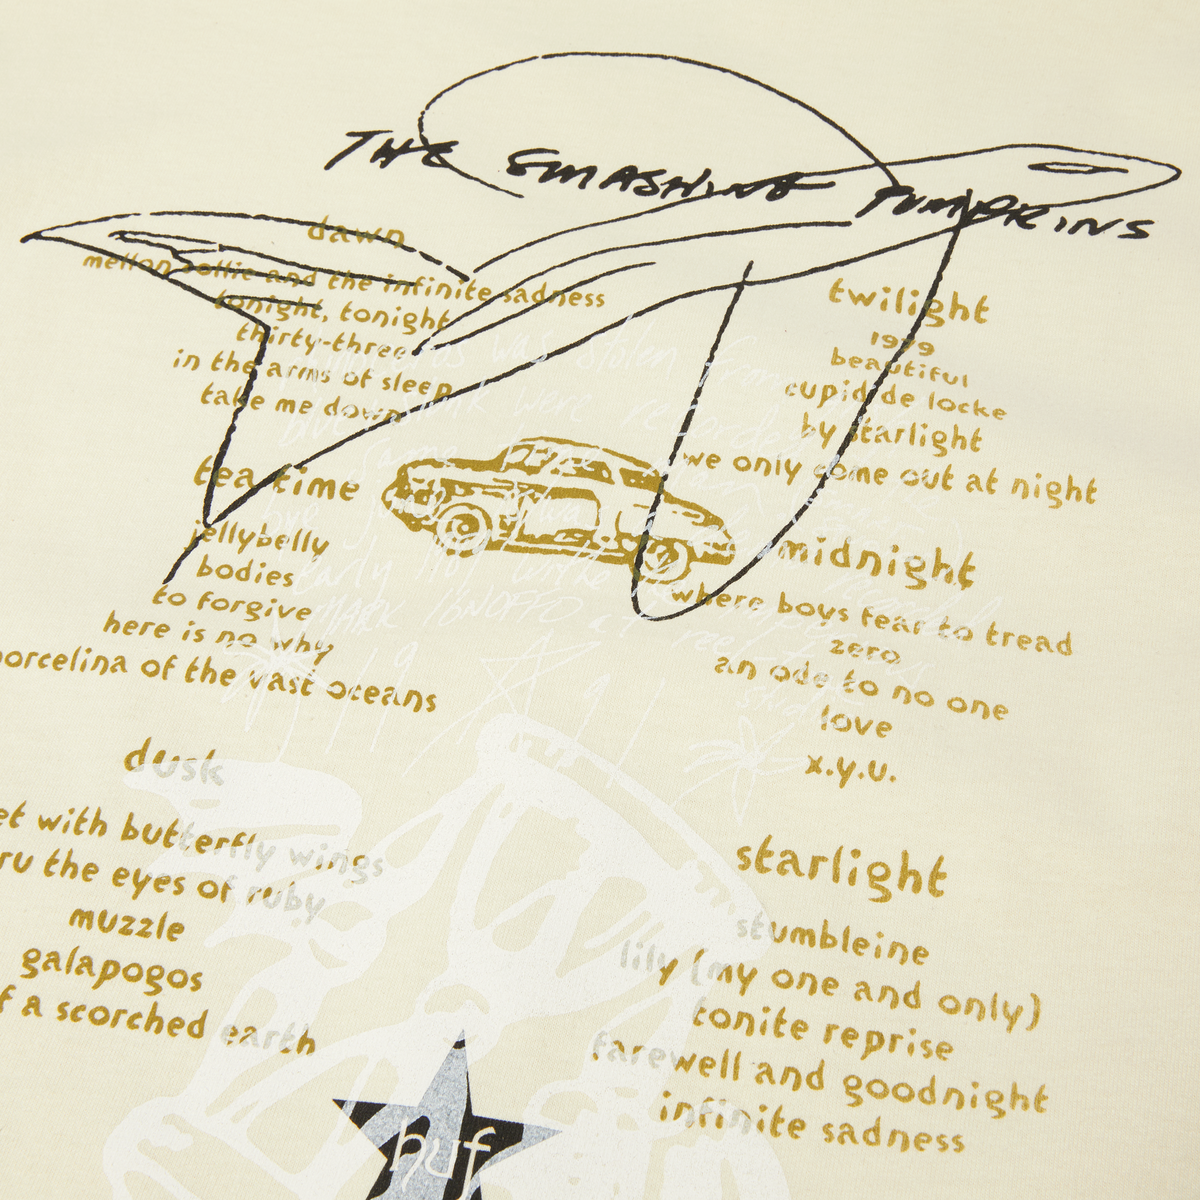 THE SMASHING PUMPKINS
dawn
mellon collie and the infinite sadness
tonight, tonight
thirty-three
in the arms of sleep
take me down
tea time
jellybelly
bodies
to forgive
here is no why
porcelina of the vast oceans
dusk
with butterfly wings
the eyes of ruby
muzzle
galapogos
a scorched earth
twilight
1979
beautiful
cupid de locke
by starlight
we only come out at night
midnight
where boys fear to tread
zero
an ode to no one
love
x.y.u.
starlight
stumbleine
lily (my one and only)
tonite reprise
farewell and goodnight
infinite sadness
was stolen from
were recorded
early
MARK
huf